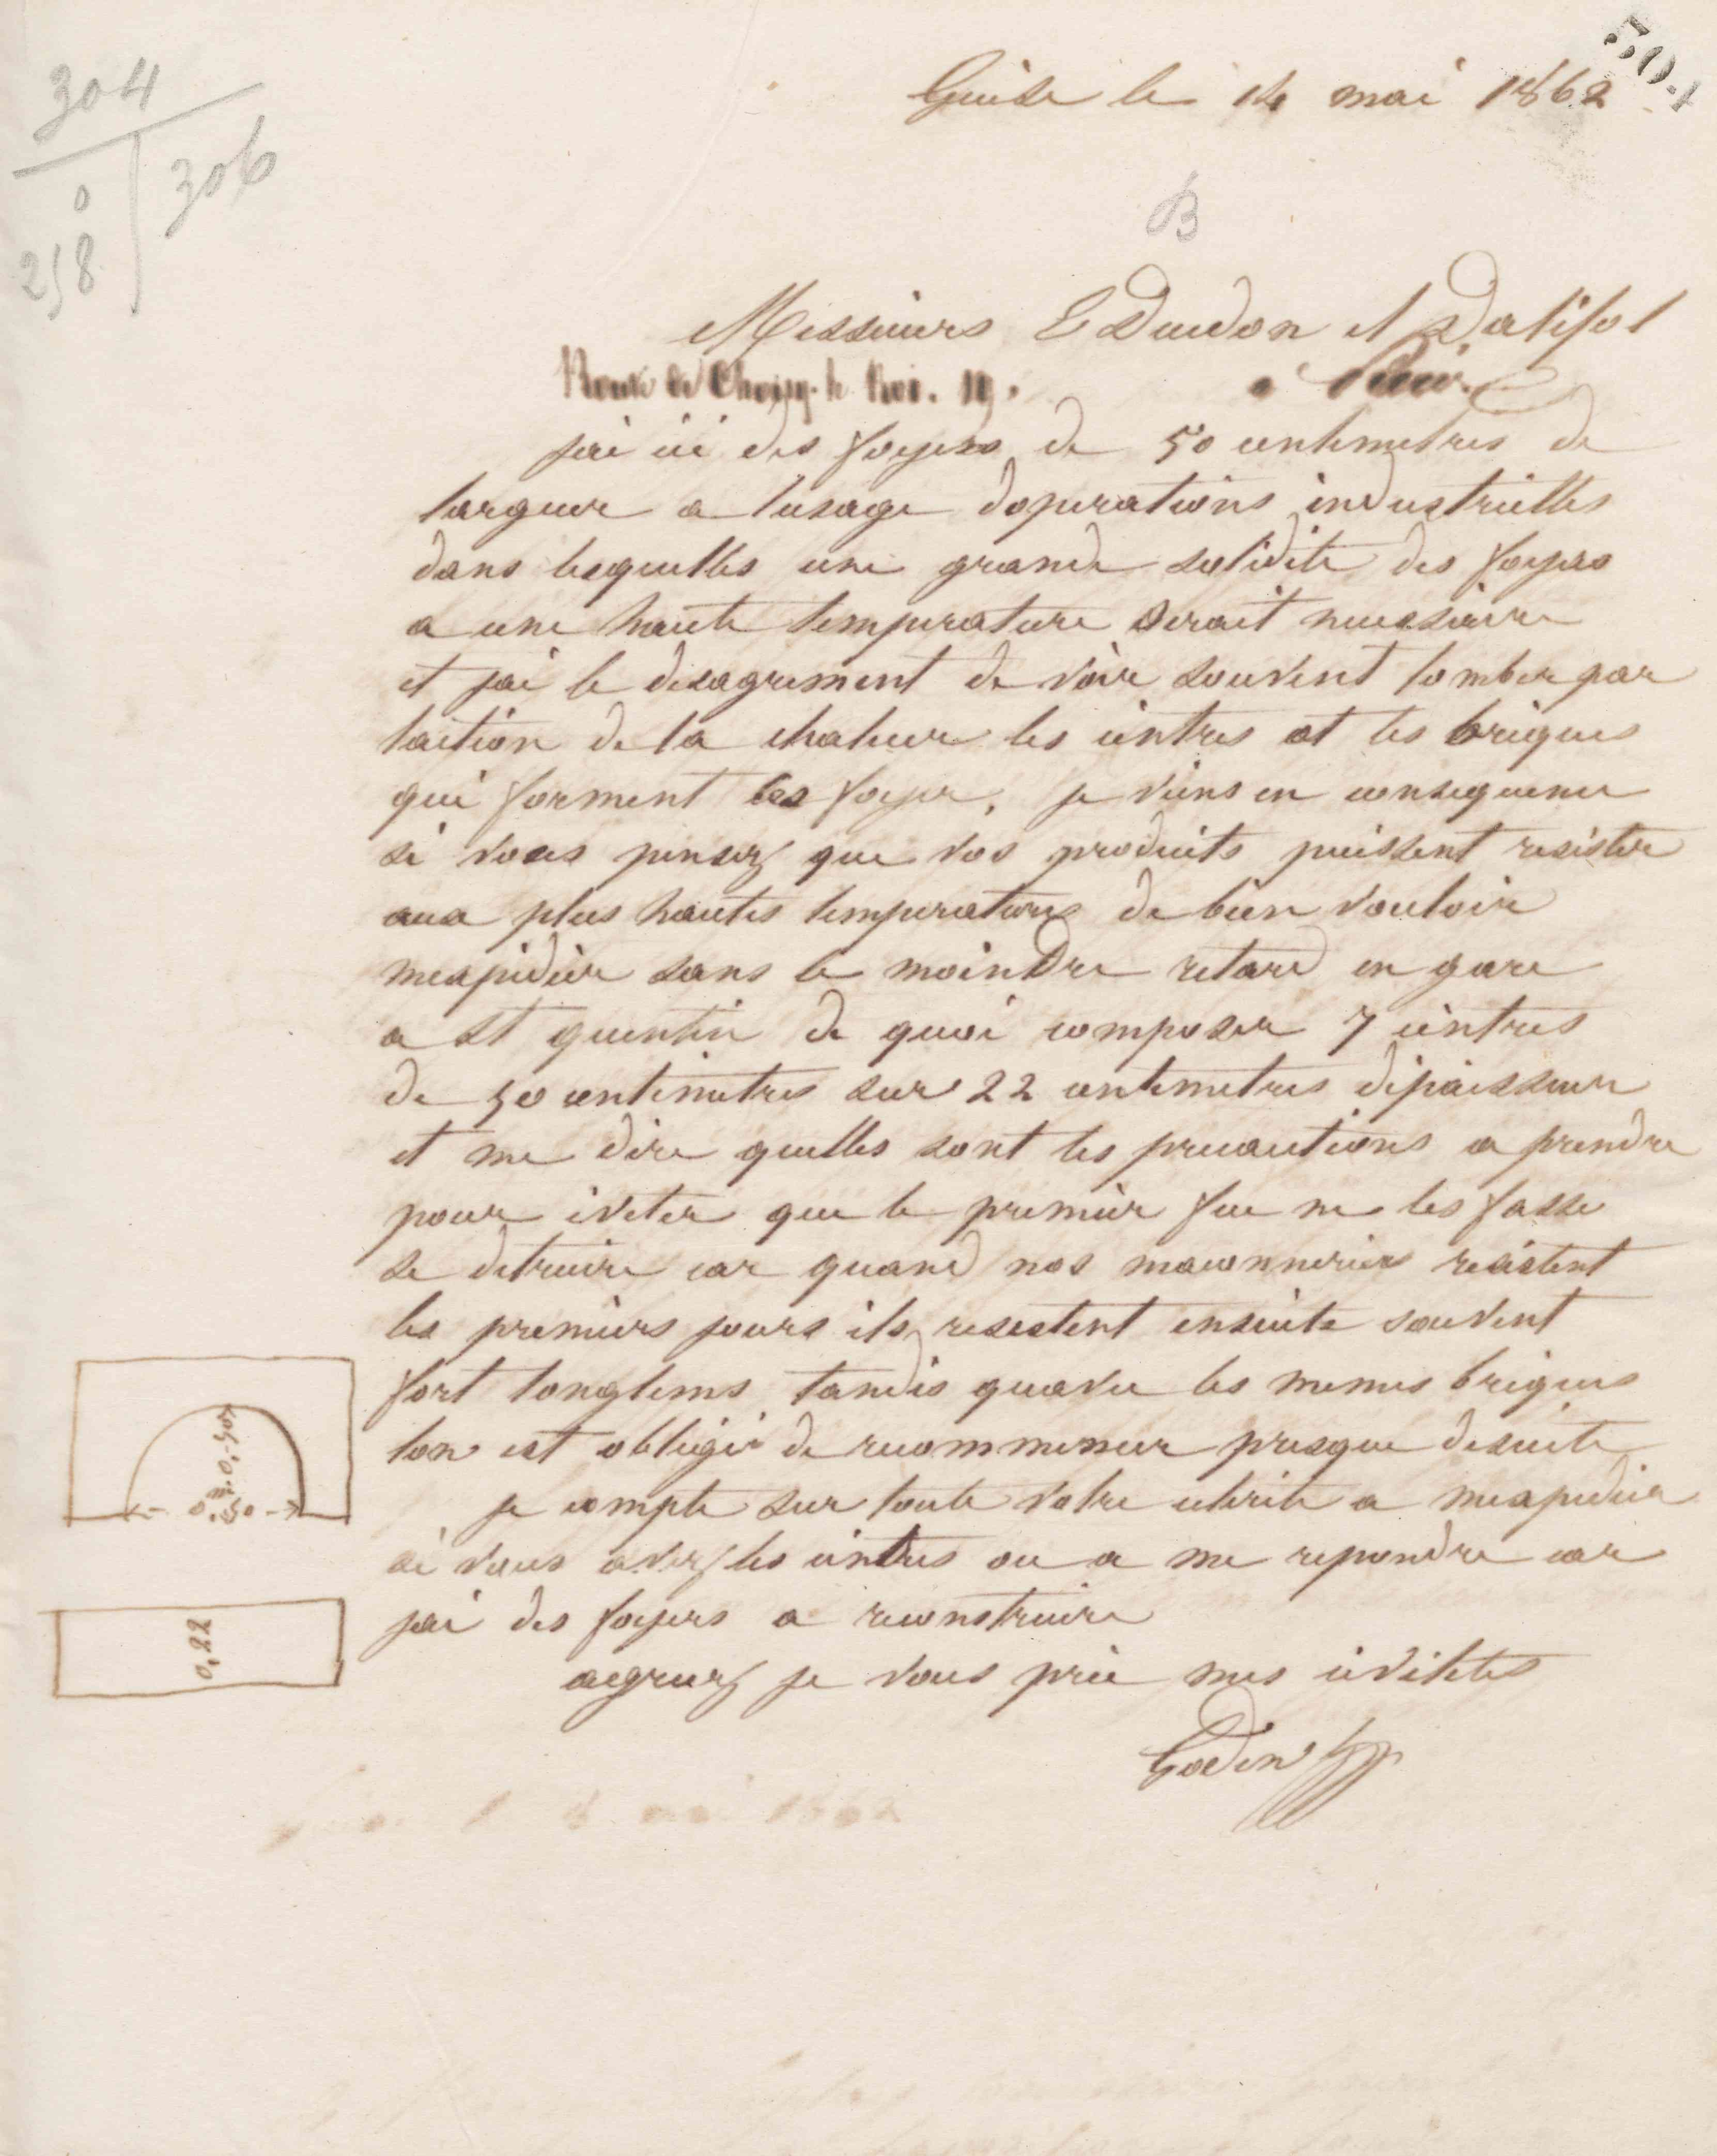 304
0
258
306
Guise le 14 mai 1862
B
Messieurs E Dudon et Dalifol
Route de Choisy-le Roi. 19. a Paris.
jai ici des foyers de 50 centimetres de
largeur a lusage doperations industrielles
dans lesquelles une grande solidite des foyers
a une haute temperature serait necessaire
et jai le desagrement de voir souvent tomber par
laction de la chaleur les cintres et les briques
qui forment les foyer. je viens en consequence
si vous pensez que vos produits puissent resister
aux plus hautes temperatures de bien vouloir
mexpedier sans le moindre retard en gare
a St quentin de quoi composer 7 cintres
de 50 centimetres sur 22 centimetres depaisseur
et me dire quelles sont les precautions a prendre
pour eviter que le premier feu ne les fasse
se detruire car quand nos maconneries resistent
les premiers jours ils resistent ensuite souvent
fort longtems tandis quavec les memes briques
lon est obligé de recommencer presque desuite
je compte sur toute votre celerite a mexpedier
si vous avez les cintres ou a me repondre car
jai des foyers a reconstruire
agreez je vous prie mes civilites
Godin
0,50
0,m50
0,22